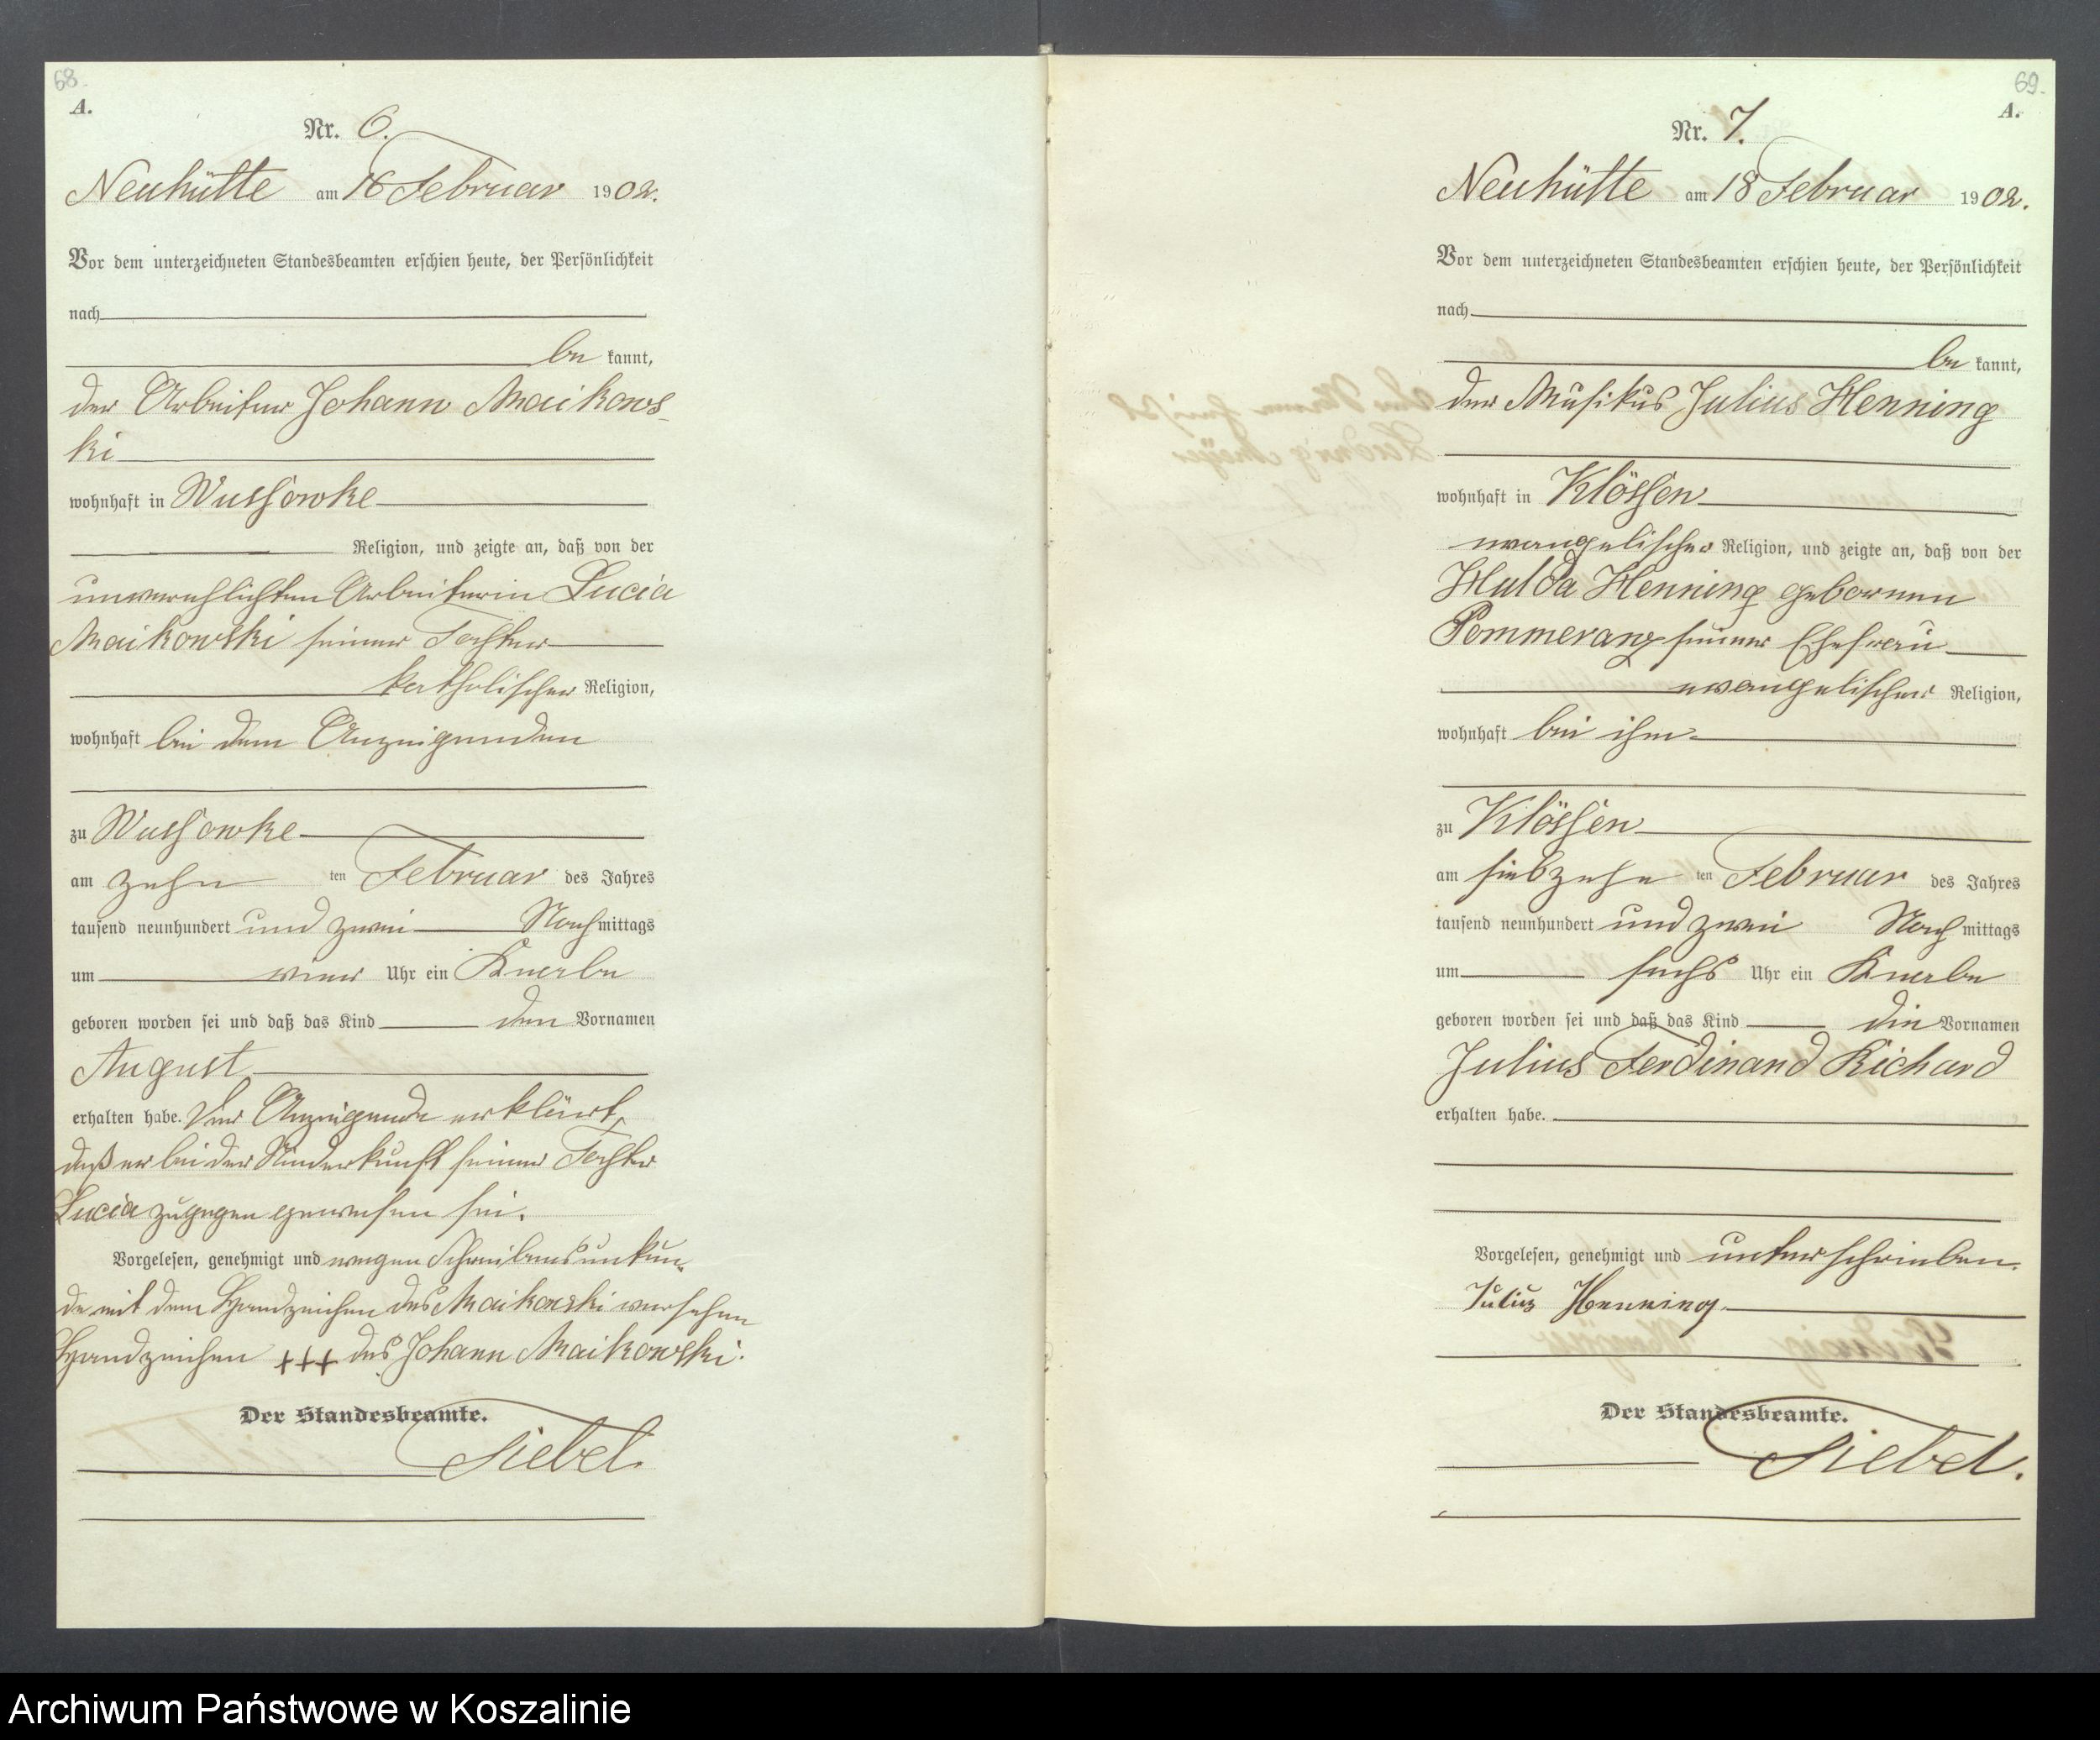 68.
A.
Nr. 6.
Neuhütte am 16 Februar 1902.
Vor dem unterzeichneten Standesbeamten erschien heute, der Persönlichkeit
nach
be kannt,
der Arbeiter Johann Maikows-
ki
wohnhaft in Wussowke
Religion, und zeigte an, daß von der
unverehlichten Arbeiterin Lucia
Maikowski seiner Tochter
katholischer Religion,
wohnhaft bei dem Anzeigenden
zu Wussowke
am zehn ten Februar des Jahres
tausend neunhundert und zwei Nach mittags
um vier Uhr ein Knabe
geboren worden sei und daß das Kind den Vornamen
August
erhalten habe. Der Anzeigende erklärt,
daß er bei der Niederkunft seiner Tochter
Lucia zugegen gewesen sei.
Vorgelesen, genehmigt und wegen Schreibensunkun-
de mit dem Handzeichen des Maikowski versehen
Handzeichen +++ des Johann Maikowski.
Der Standesbeamte.
Siebel.
69.
A.
Nr. 7.
Neuhütte am 18 Februar 1902.
Vor dem unterzeichneten Standesbeamten erschien heute, der Persönlichkeit
nach
be kannt,
der Musikus Julius Henning
wohnhaft in Klössen
evangelischer Religion, und zeigte an, daß von der
Hulda Henning gebornen
Pommeranz seiner Ehefrau
evangelischer Religion,
wohnhaft bei ihm
zu Klössen
am siebzehn ten Februar des Jahres
tausend neunhundert und zwei Nach mittags
um sechs Uhr ein Knabe
geboren worden sei und daß das Kind die Vornamen
Julius Ferdinand Richard
erhalten habe.
Vorgelesen, genehmigt und unterschrieben.
Julius Henning
Der Standesbeamte.
Siebel.
Archiwum Państwowe w Koszalinie